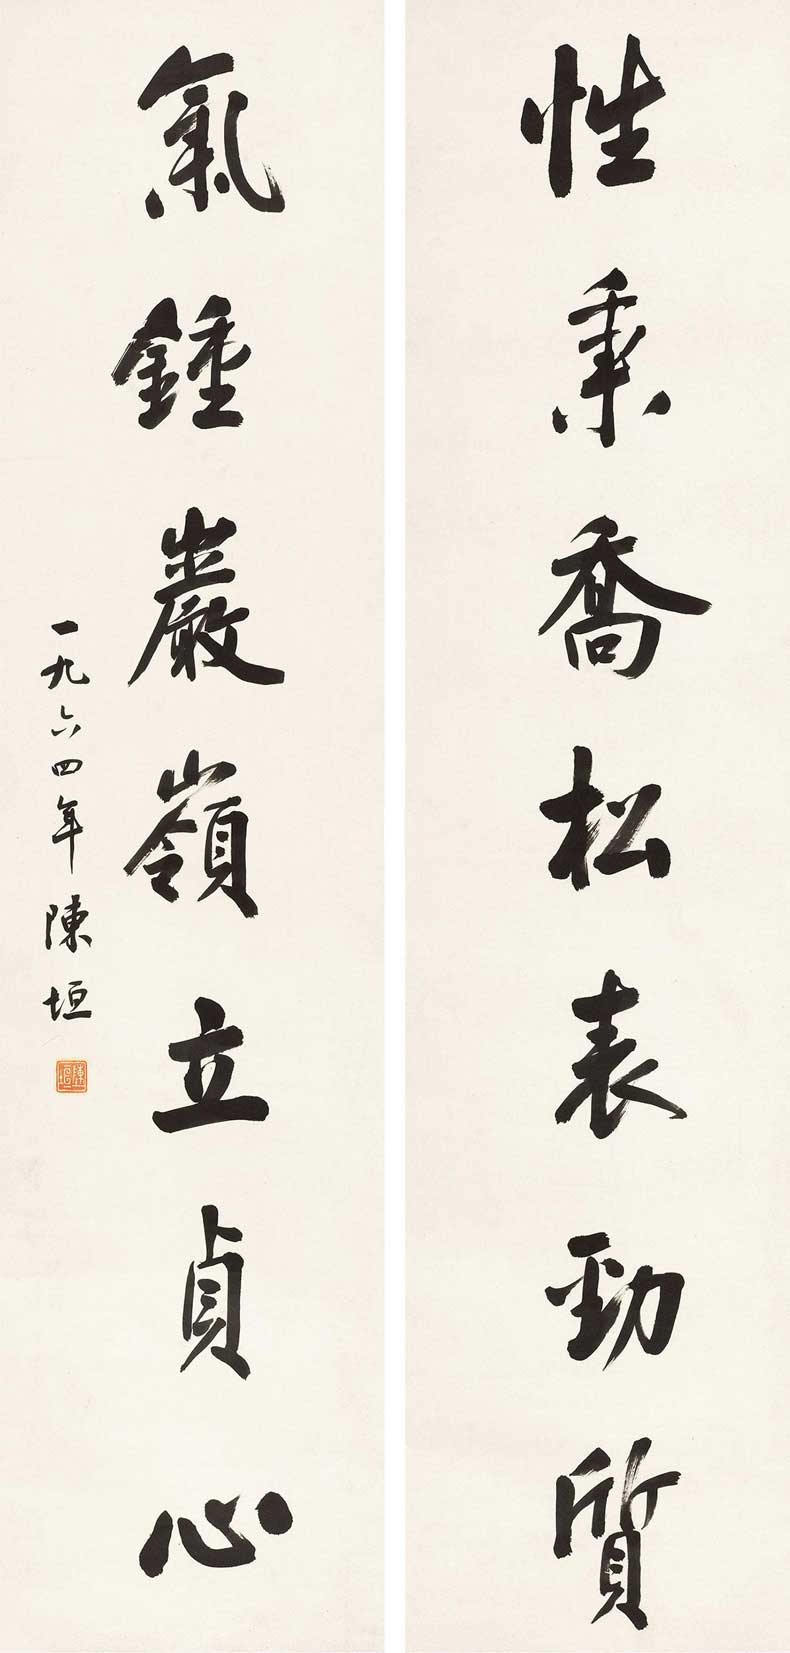 性秉喬松表勁質
氣鍾巖嶺立貞心
一九六四年陳垣
陳垣